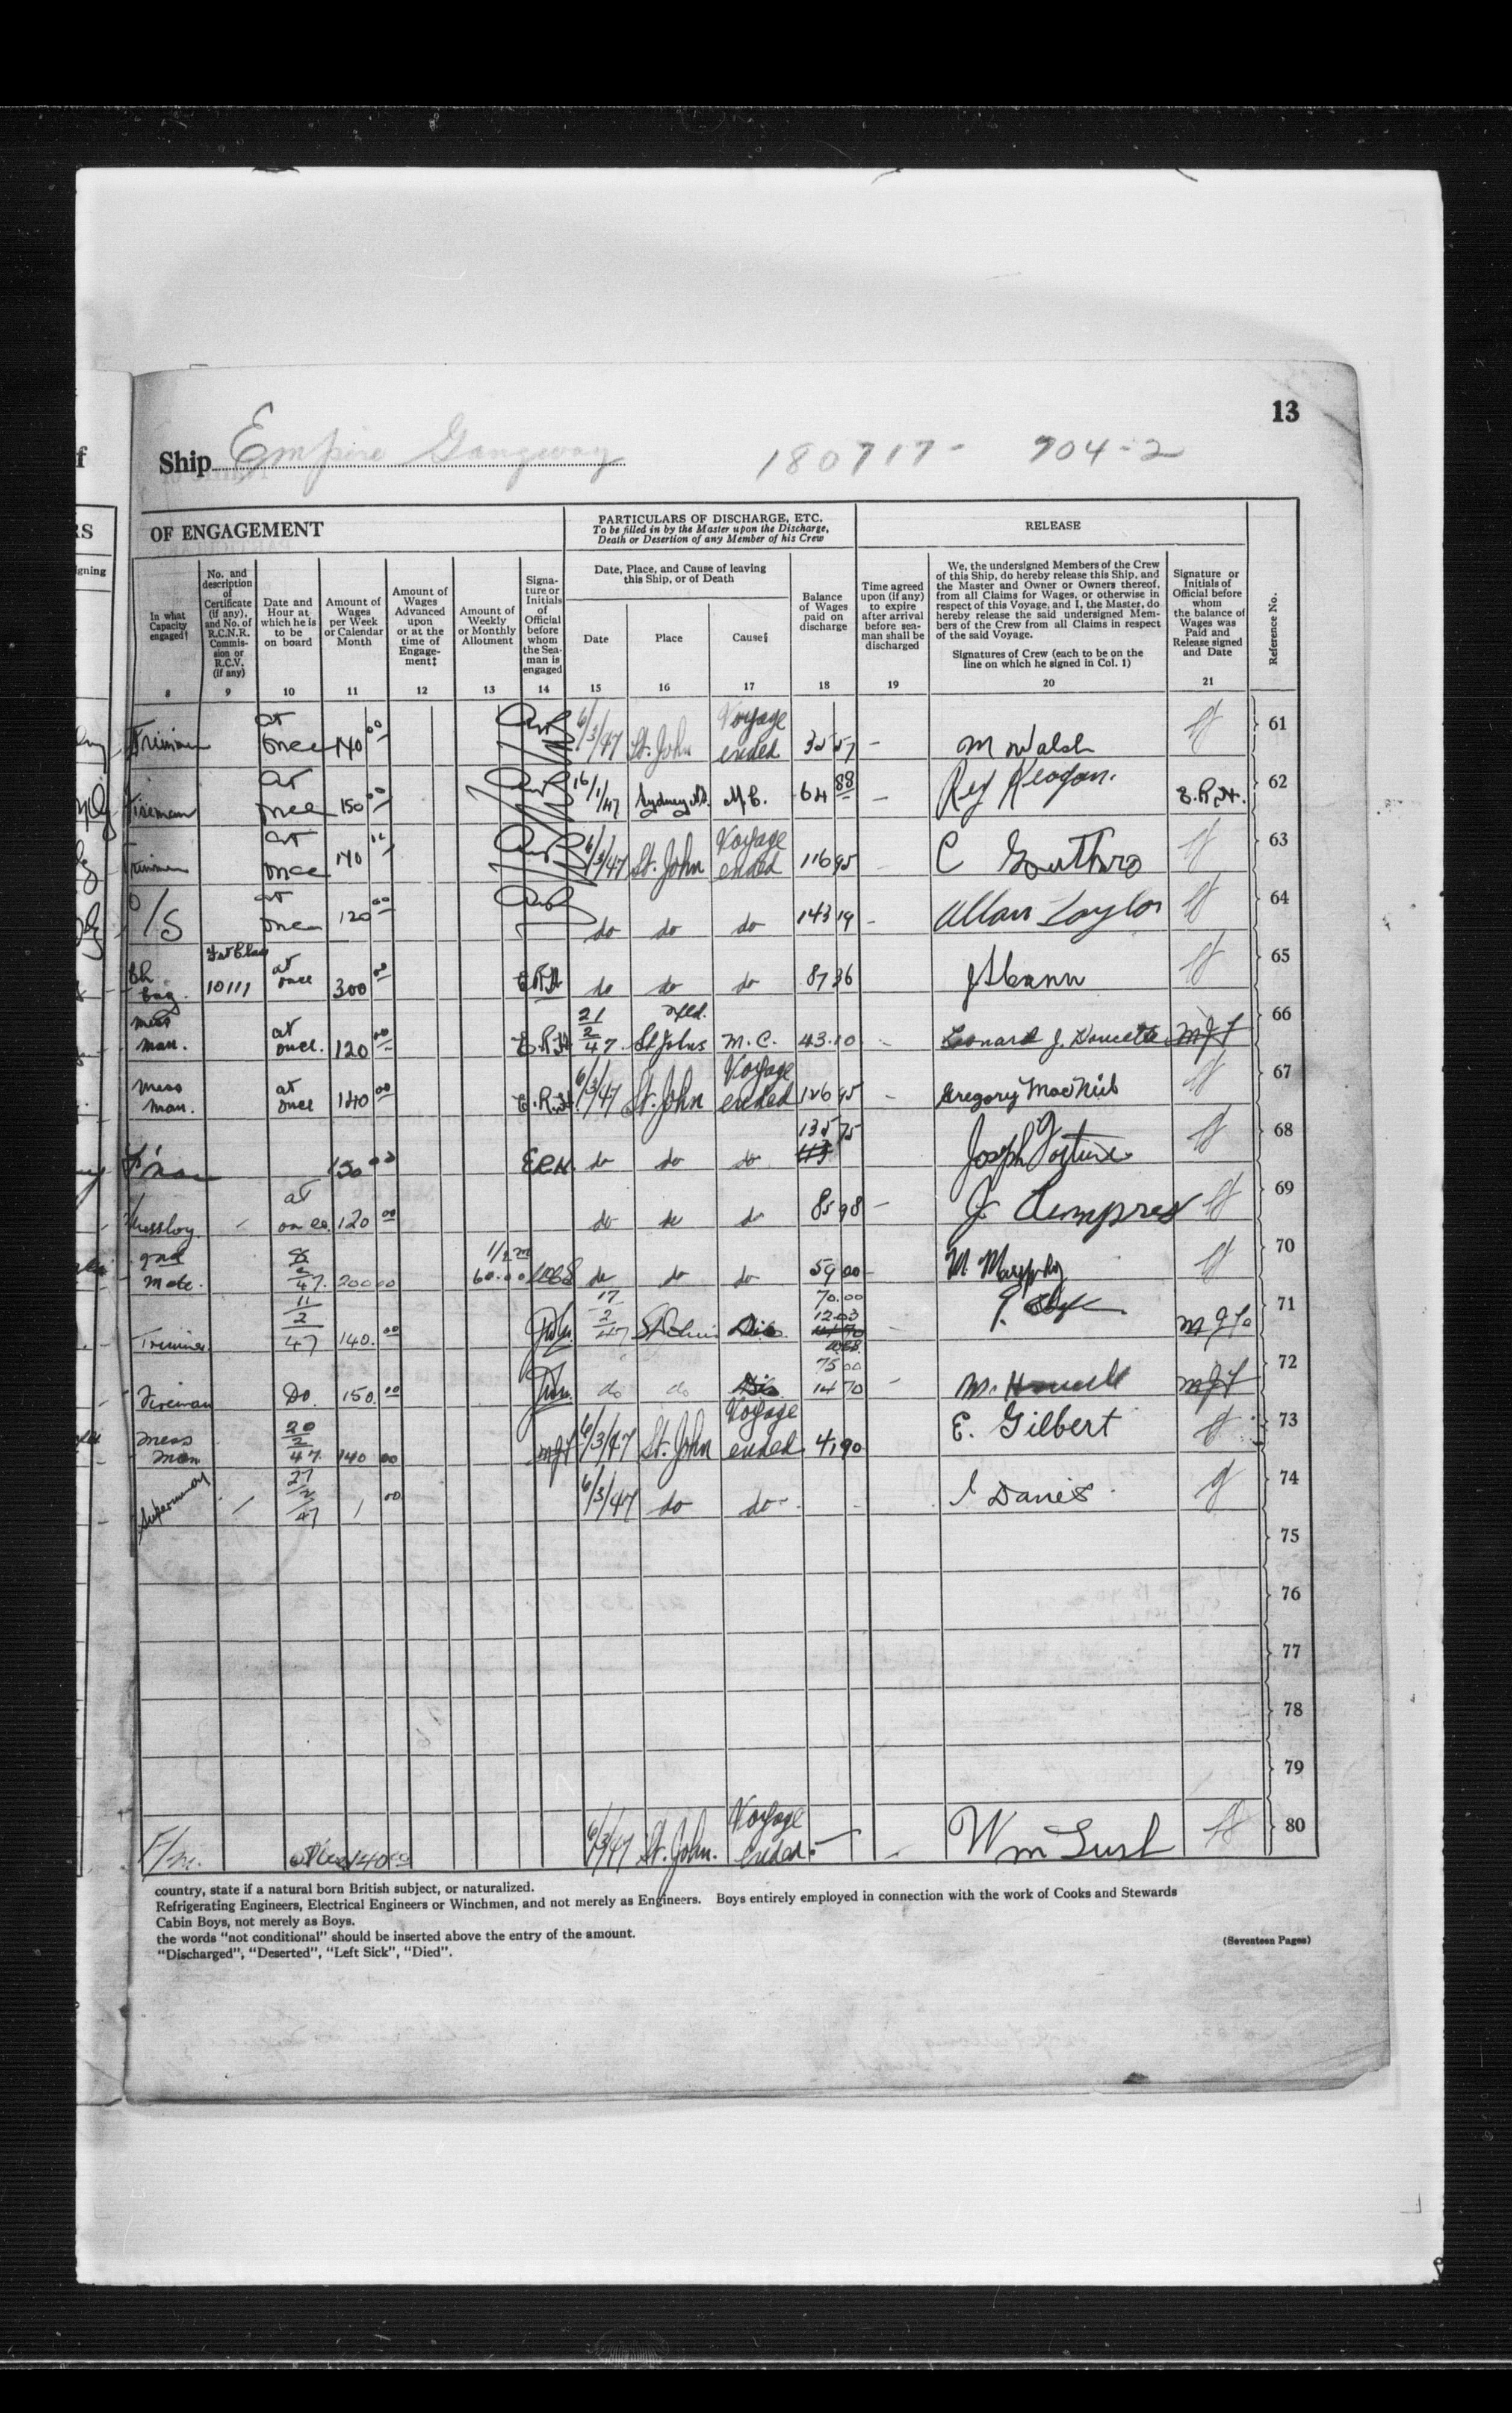 13
Ship Empire Gangway 180717- 704-2
OF ENGAGEMENT
PARTICULARS OF DISCHARGE, ETC.
To be filled in by the Master upon the Discharge,
Death or Desertion of any Member of his Crew
RELEASE
In what
Capacity
engaged†
8
No. and
description
of
Certificate
(if any),
and No. of
R.C.N.R.
Commis-
sion or
R.C.V.
(if any)
9
Date and
Hour at
which he is
to be
on board
10
Amount of
Wages
per Week
or Calendar
Month
11
Amount of
Wages
Advanced
upon
or at the
time of
Engage-
ment‡
12
Amount of
Weekly
or Monthly
Allotment
13
Signa-
ture or
Initials
of
Official
before
whom
the Sea-
man is
engaged
14
Date, Place, and Cause of leaving
this Ship, or of Death
Date
15
Place
16
Cause§
17
Balance
of Wages
paid on
discharge
18
Time agreed
upon (if any)
to expire
after arrival
before sea-
man shall be
discharged
19
We, the undersigned Members of the Crew
of this Ship, do hereby release this Ship, and
the Master and Owner or Owners thereof,
from all Claims for Wages, or otherwise in
respect of this Voyage, and I, the Master, do
hereby release the said undersigned Mem-
bers of the Crew from all Claims in respect
of the said Voyage.
Signatures of Crew (each to be on the
line on which he signed in Col. 1)
20
Signature or
Initials of
Official before
whom
the balance of
Wages was
Paid and
Release signed
and Date
21
Reference No.
Trimmer at once 140 00 6/3/47 St. John Voyage ended 35 57 - M Walsh 61
Fireman at once 150 00 16/1/47 Sydney N.S. M.C. 64 88 - Reg Keogan. E.R.H. 62
Trimmer at once 140 6/3/47 St. John Voyage ended 116 95 C Gouthro 63
O/S at once 120 00 do do do 143 19 - Allan Taylor 64
Ch Eng. 1st Class 10111 at once 300 00 E.R.H. do do do 87 36 65
Mess man. at once. 120 00 E.R.H. 21/2/47. St Johns Nfld. M.C. 43.10 - Leonard J. Doucette MJF 66
Mess man. at once 140 00 E.R.H. 6/3/47 St. John Voyage ended 126 95 - Gregory MacNiel 67
F'man 150 00 E.R.H. do do do 135 75 Joseph Fortune 68
Messboy. - at once. 120 00 do do do 85 98 - 69
2nd Mate. 200 00 60.00 do do do 59 00 - M. Murphy 70
Trimmer 11/2/47 140. 00 17/2/47 St Johns Dis. 70.00 12.03 - MJF 71
Fireman Do. 150. 00 do do Dis. 75 00 14 70 - M. Howell MJF 72
Mess Man 20/2/47. 140 00 MJF 6/3/47 St. John Voyage ended 41 90 E. Gilbert 73
Supernumary / 27/2/47 1 00 6/3/47 do do - - Davies 74
75
76
77
78
79
F/m. at once 140 00 6/3/47 St. John. Voyage Ended. - - Wm Lush 80
country, state if a natural born British subject, or naturalized.
Refrigerating Engineers, Electrical Engineers or Winchmen, and not merely as Engineers. Boys entirely employed in connection with the work of Cooks and Stewards
Cabin Boys, not merely as Boys.
the words "not conditional" should be inserted above the entry of the amount.
"Discharged", "Deserted", "Left Sick", "Died".
(Seventeen Pages)